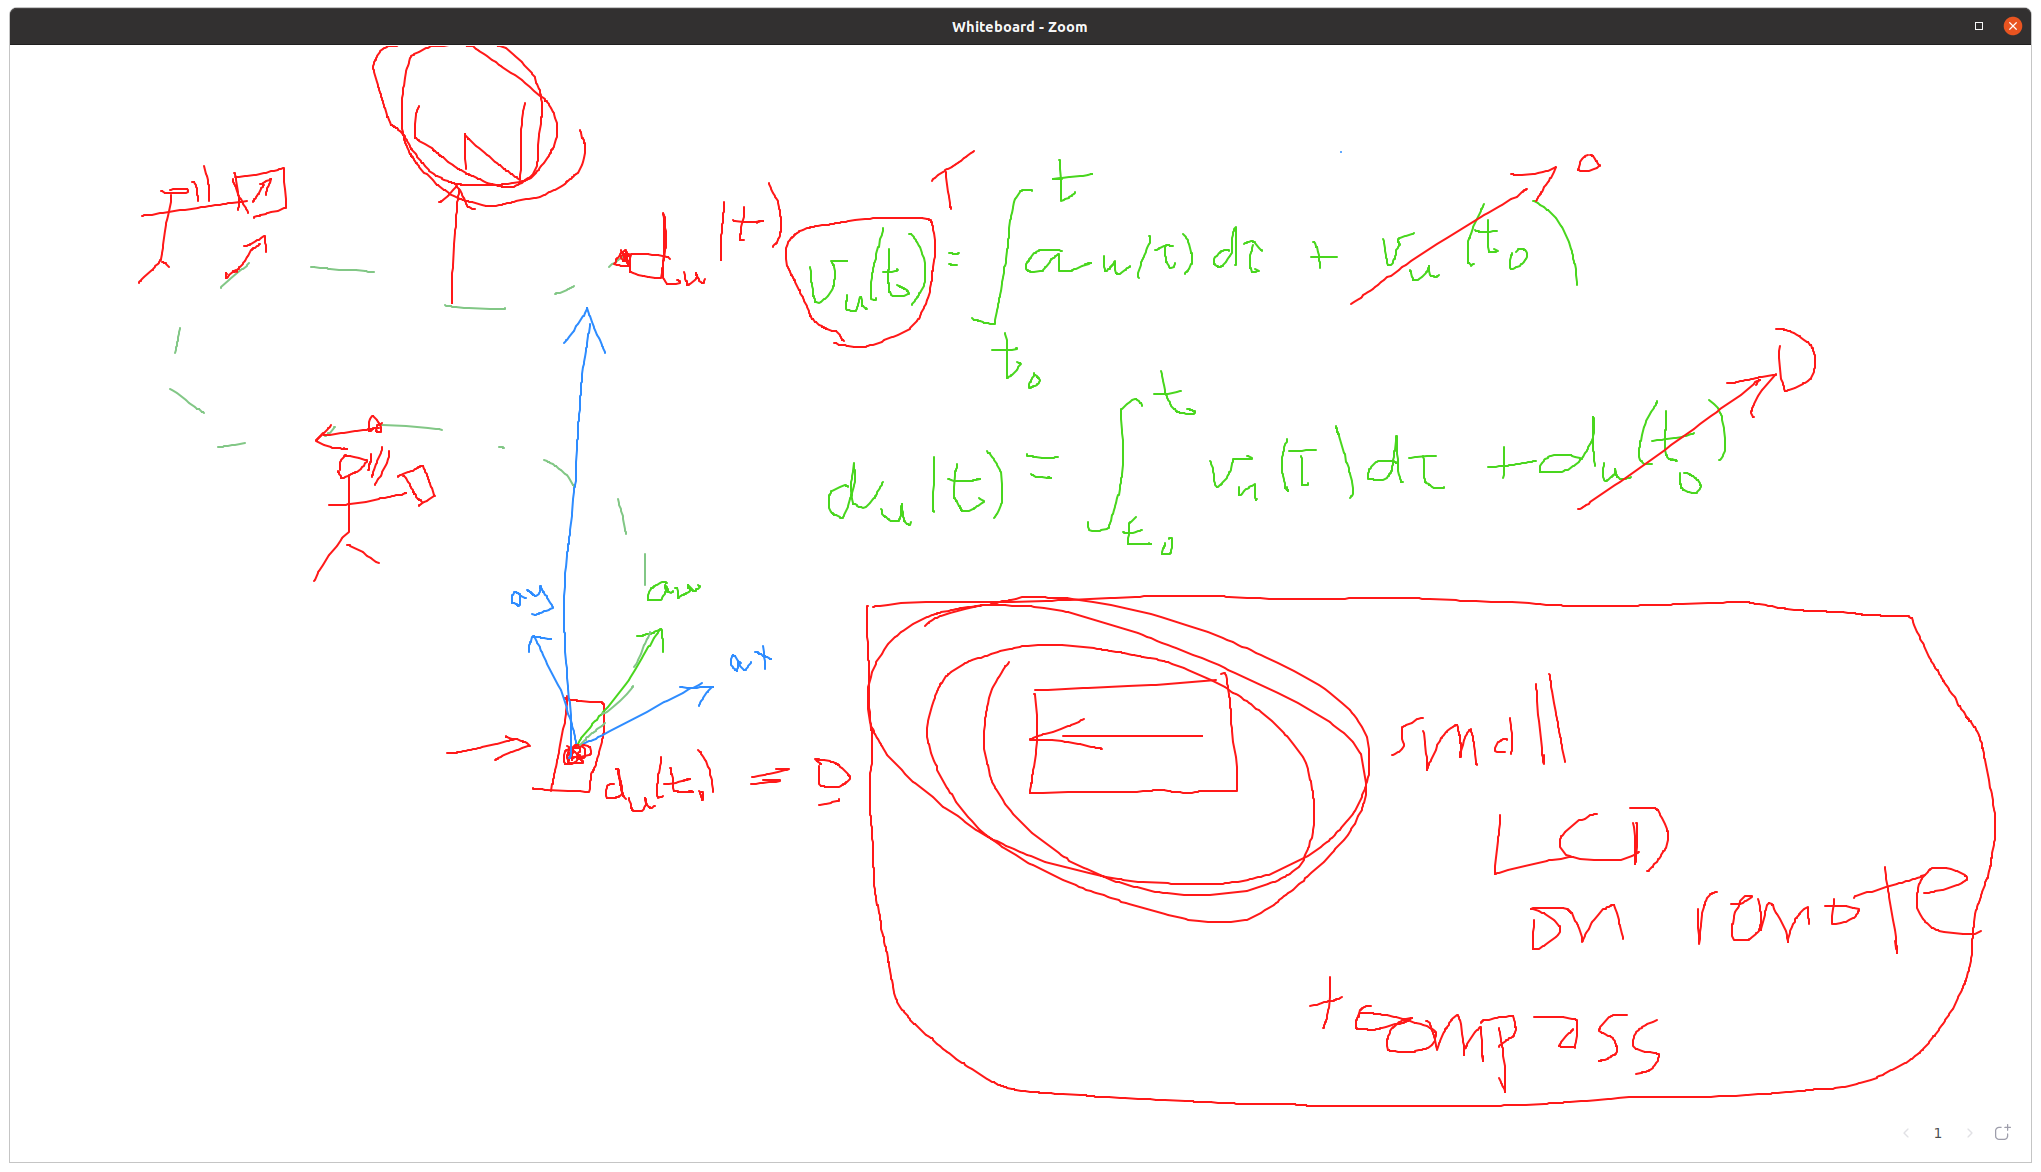 Whiteboard - Zoom
N
T
du(t)
vu(t) = ∫ t t0 au(τ) dτ + vu(t0) 0
du(t) = ∫ t t0 vu(τ) dτ + du(t0) 0
ay
au
ax
du(t0) = 0
small
LCD
on remote
+ compass
1